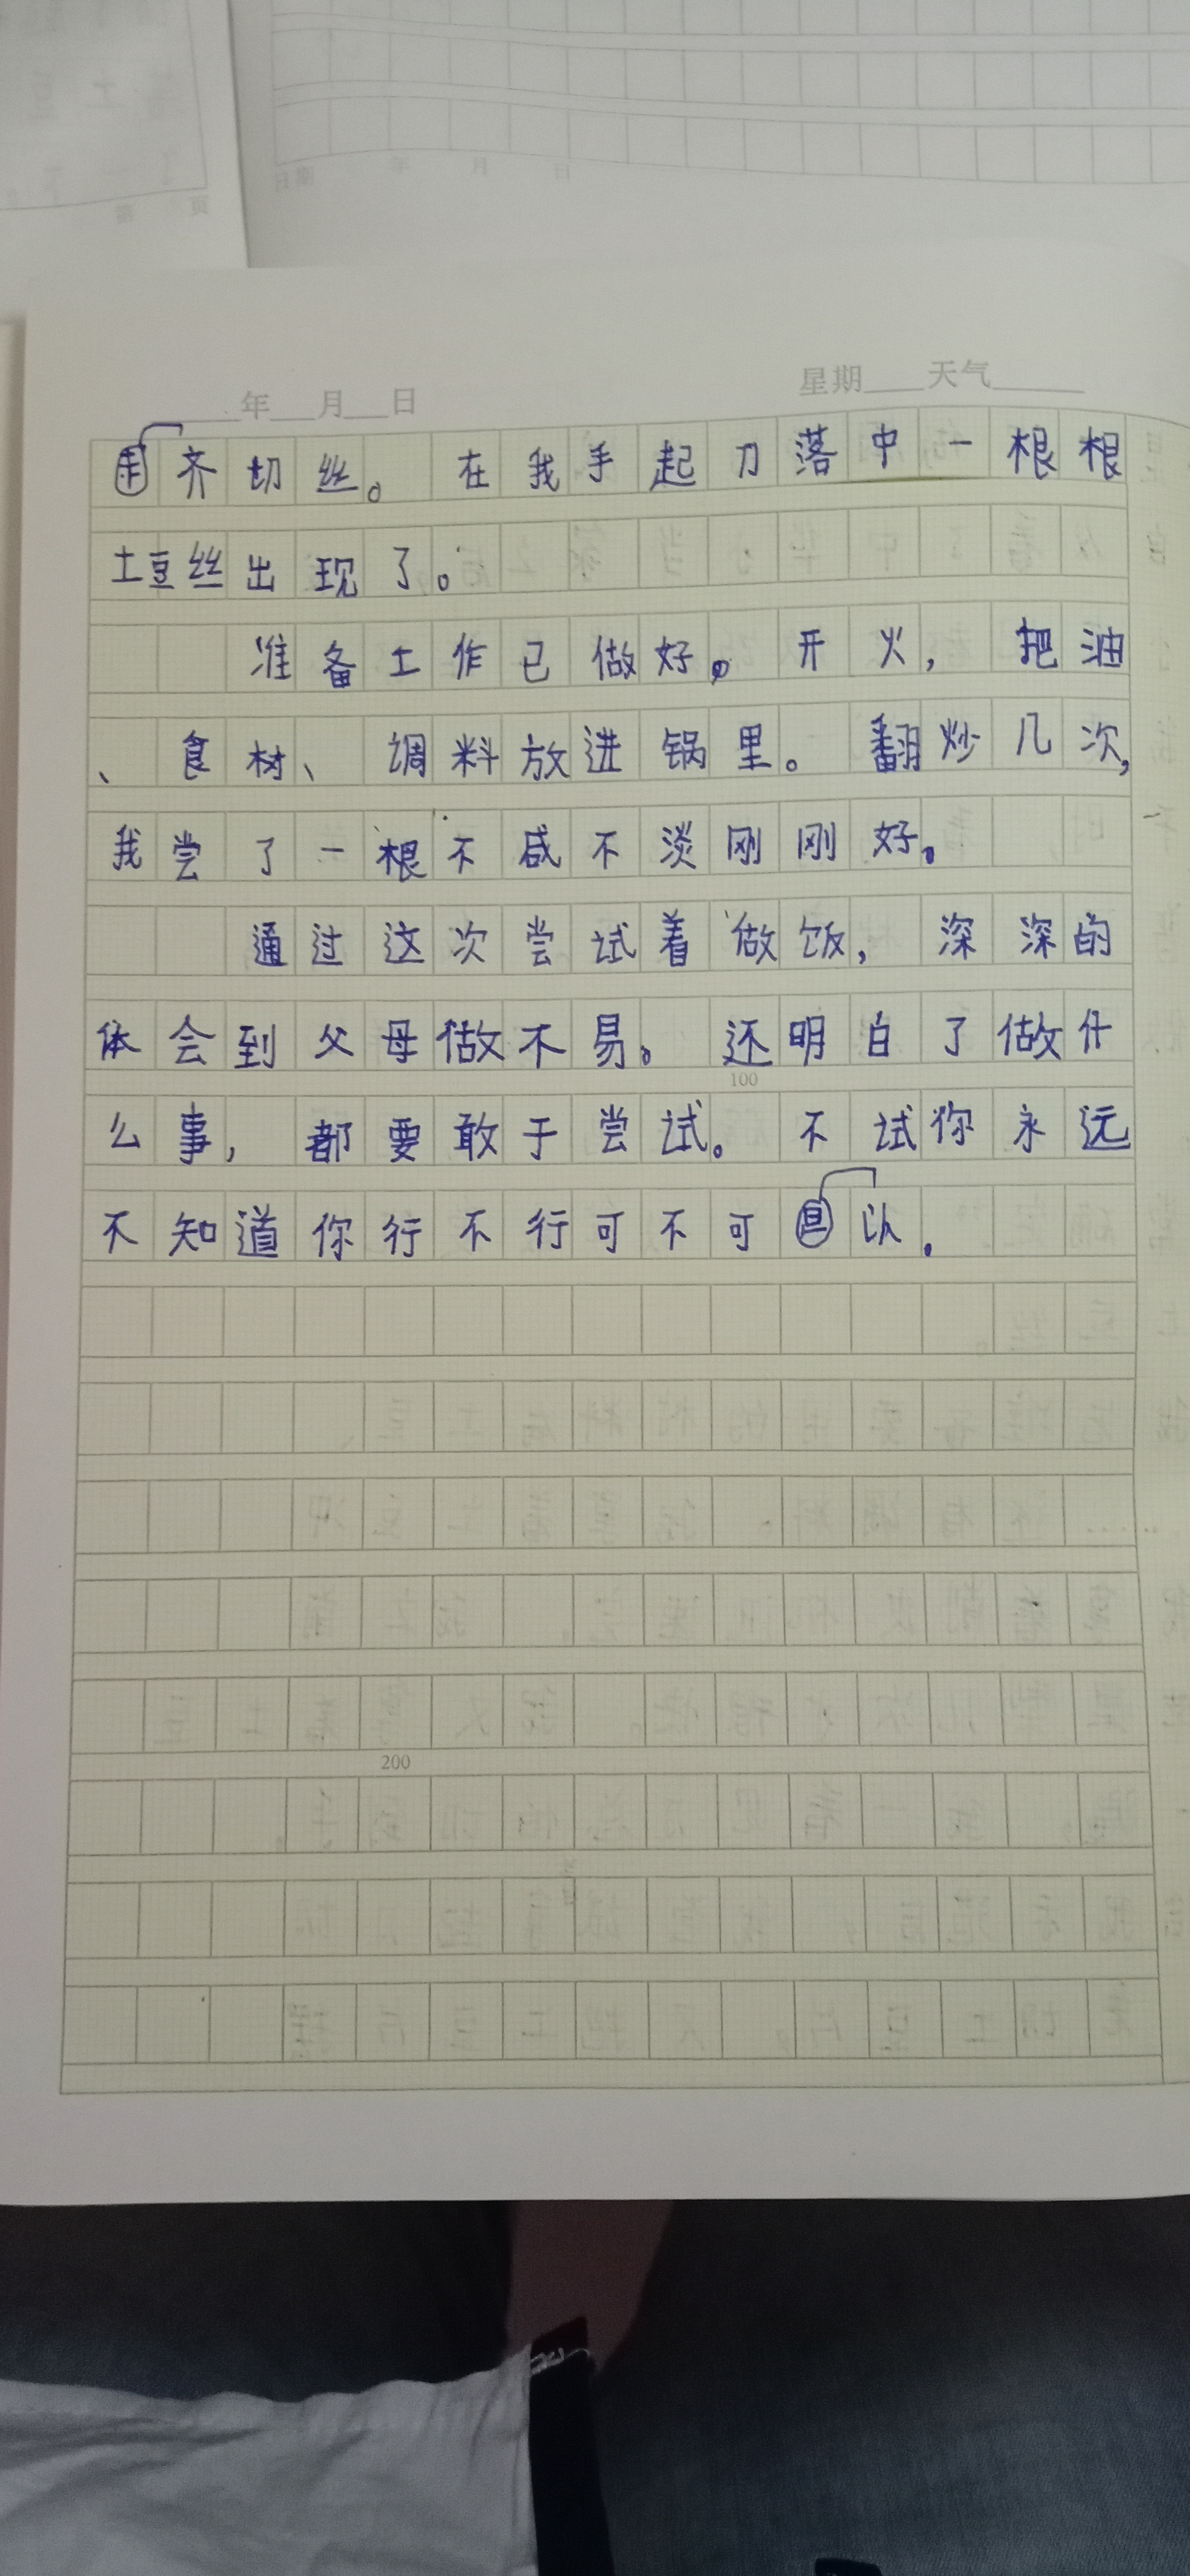 年 月 日
星期 天气
齐切丝。在我手起刀落中一根根
土豆丝出现了。
准备土作已做好。开火,把油
、食材、调料放进锅里。翻炒几次,
我尝了一根不咸不淡刚刚好。
通过这次尝试着做饭,深深的
体会到父母做不易。还明白了做什
么事,都要敢于尝试。不试你永远
100
不知道你行不行可不可以.
200